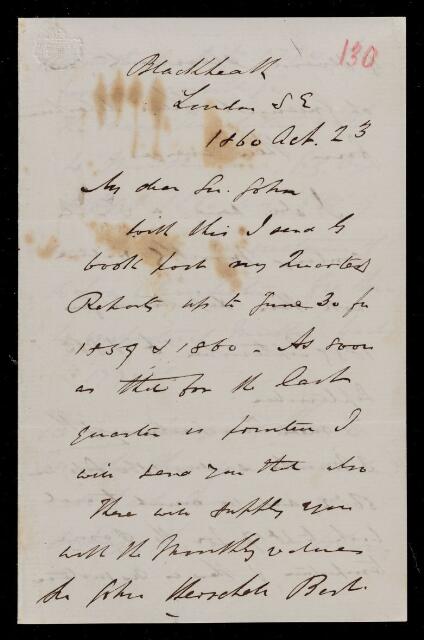 130
Blackheath
London S E
1860 Oct. 23
My dear Sir John
With this I send by
book post my Quarterly
Reports up to June 30 for
1859 & 1860 - As soon
as that for the last
quarter is printed I
will send you that also
These will supply you
with the Monthly values
Sir John Herschel Bart.